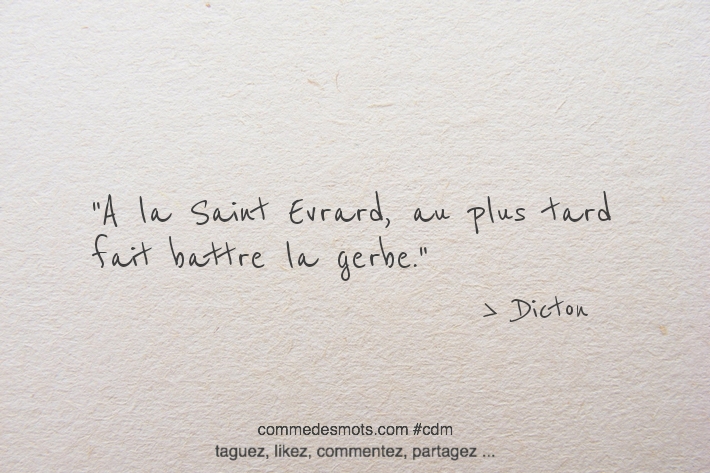 "A la Saint Evrard, au plus tard
fait battre la gerbe."
> Dicton
commedesmots.com #cdm
taguez, likez, commentez, partagez ...